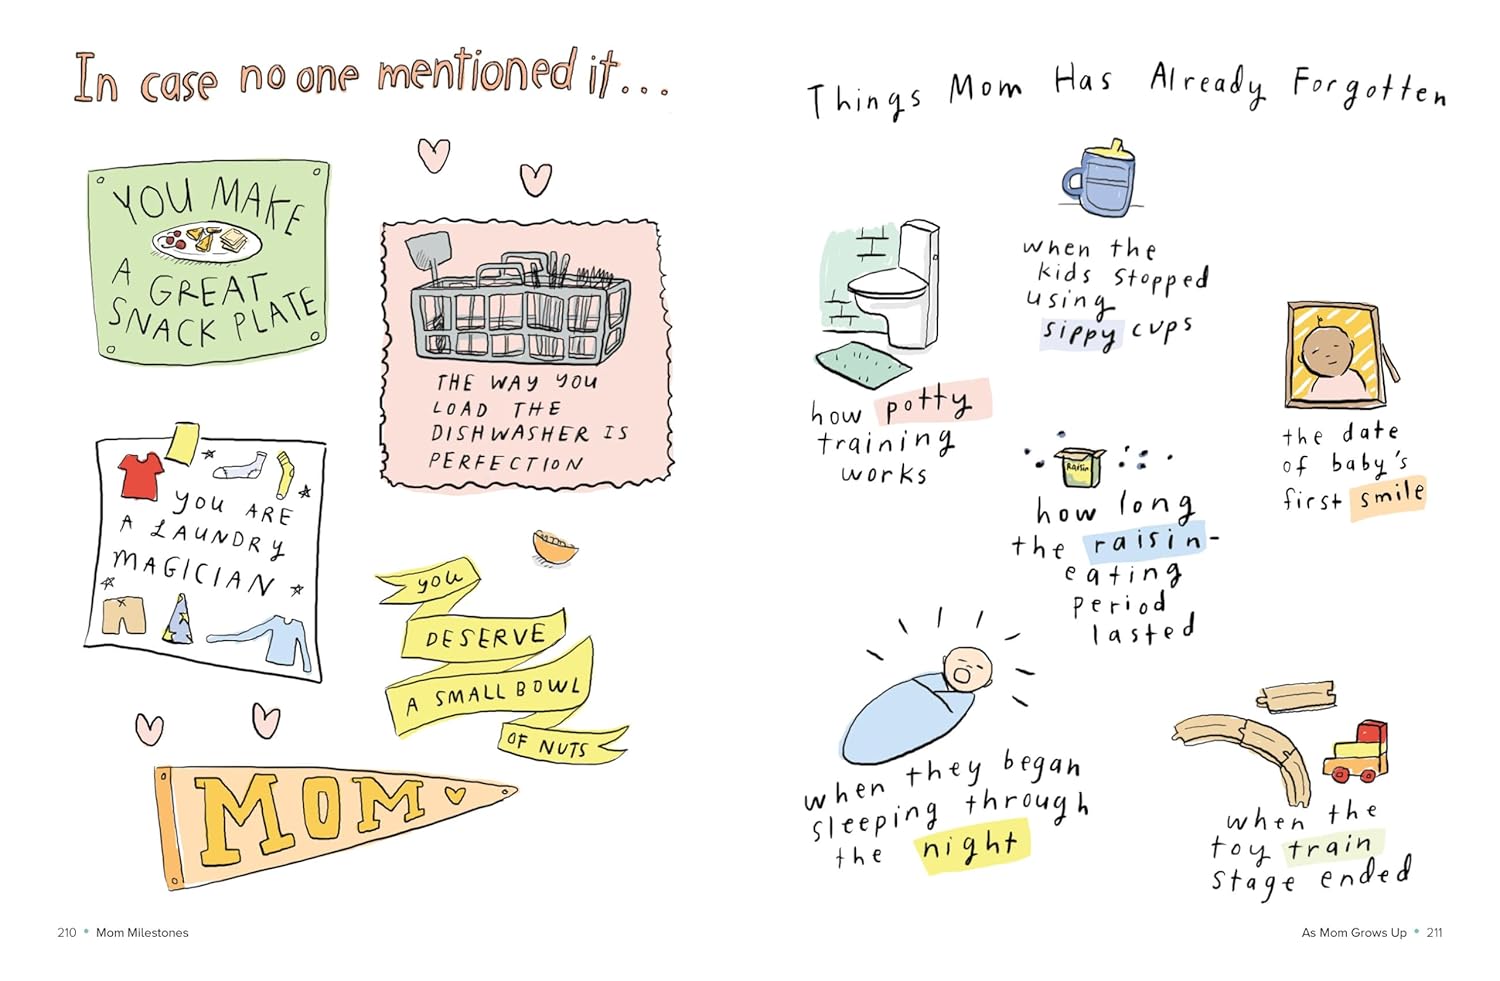 In case no one mentioned it...
YOU MAKE
A GREAT
SNACK PLATE
THE WAY YOU
LOAD THE
DISHWASHER IS
PERFECTION
YOU ARE
A LAUNDRY
MAGICIAN
you
DESERVE
A SMALL BOWL
OF NUTS
MOM
210 • Mom Milestones
Things Mom Has Already Forgotten
when the
kids stopped
using
sippy cups
how potty
training
works
the date
of baby's
first smile
Raisin
how long
the raisin-
eating
period
lasted
when they began
sleeping through
the night
when the
toy train
stage ended
As Mom Grows Up • 211